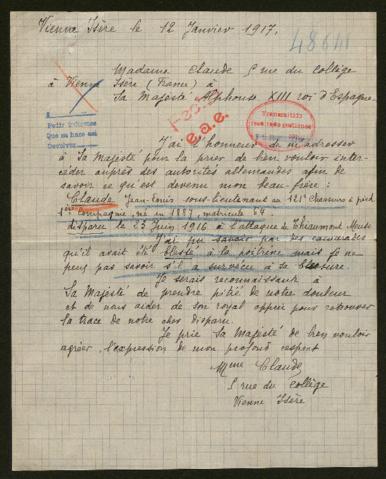 Vienne Isère le 12 Janvier 1917.
48641
Madame Claude 5 rue du Collège
à Vienne Isère (France) à
Sa Majesté Alphonse XIII roi d'Espagne
Pedir informes
Que se hace así
Devolver
e.a.e.
J'ai l'honneur de m'adresser
à Sa Majesté pour la prier de bien vouloir inter-
céder auprès des autorités allemandes afin de
savoir ce qu'est devenu mon beau-frère :
Claude Jean-Louis sous-lieutenant au 121e Chasseurs à pied
1ere Compagnie, né en 1887, matricule 64
disparu le 23 Juin 1916 à l'attaque de Thiaumont Meuse
J'ai pu savoir par des camarades
qu'il avait été blessé à la poitrine mais je ne
peux pas savoir s'il a survécu à sa blessure.
Je serais reconnaissante à
Sa Majesté de prendre pitié de notre douleur
et de nous aider de son royal appui pour retrouver
la trace de notre cher disparu.
Je prie Sa Majesté de bien vouloir
agréer l'expression de mon profond respect
Mme Claude
5 rue du Collège
Vienne Isère